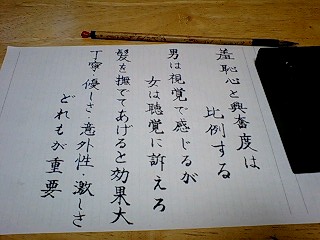 羞恥心と興奮度は
比例する
男は視覚で感じるが
女は聴覚に訴えろ
髪を撫でてあげると効果大
丁寧・優しさ・意外性・激しさ
どれもが重要